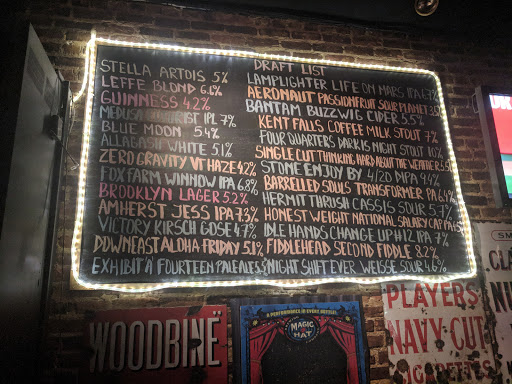 DRAFT LIST
STELLA ARTOIS 5%
LEFFE BLOND 6.6%
GUINNESS 4.2%
MEDUSA IPL 7%
BLUE MOON 5.4%
ALLAGASH WHITE 5.1%
ZERO GRAVITY VT HAZE
FOX FARM WINNOW IPA 6.8%
BROOKLYN LAGER 5.2%
AMHERST JESS IPA 7.3%
VICTORY KIRSCH GOSE 4.7%
DOWNEAST ALOHA FRIDAY 5.1%
EXHIBIT 'A' FOURTEEN PALE ALE
LAMPLIGHTER LIFE ON MARS IPA
AERONAUT PASSIONFRUIT SOUR PLANET
BANTAM BUZZWIG CIDER 5.5%
KENT FALLS COFFEE MILK STOUT 7%
FOUR QUARTERS DARK IS NIGHT STOUT
SINGLE CUT THINKING HARD ABOUT THE WEATHER
STONE ENJOY BY 4/20 DIPA 9.4%
BARRELLED SOULS TRANSFORMER PA 6.4%
HERMIT THRUSH CASSIS SOUR 5.7%
HONEST WEIGHT NATIONAL SALARY CAP IPA
IDLE HANDS CHANGE UP #12 IPA 7%
FIDDLEHEAD SECOND FIDDLE 8.2%
NIGHT SHIFT EVER WEISSE SOUR 4.6%
WOODBINË
A PERFORMANCE IN EVERY BOTTLE
MAGIC HAT
PLAYERS
NAVY CUT
CIGARETTES